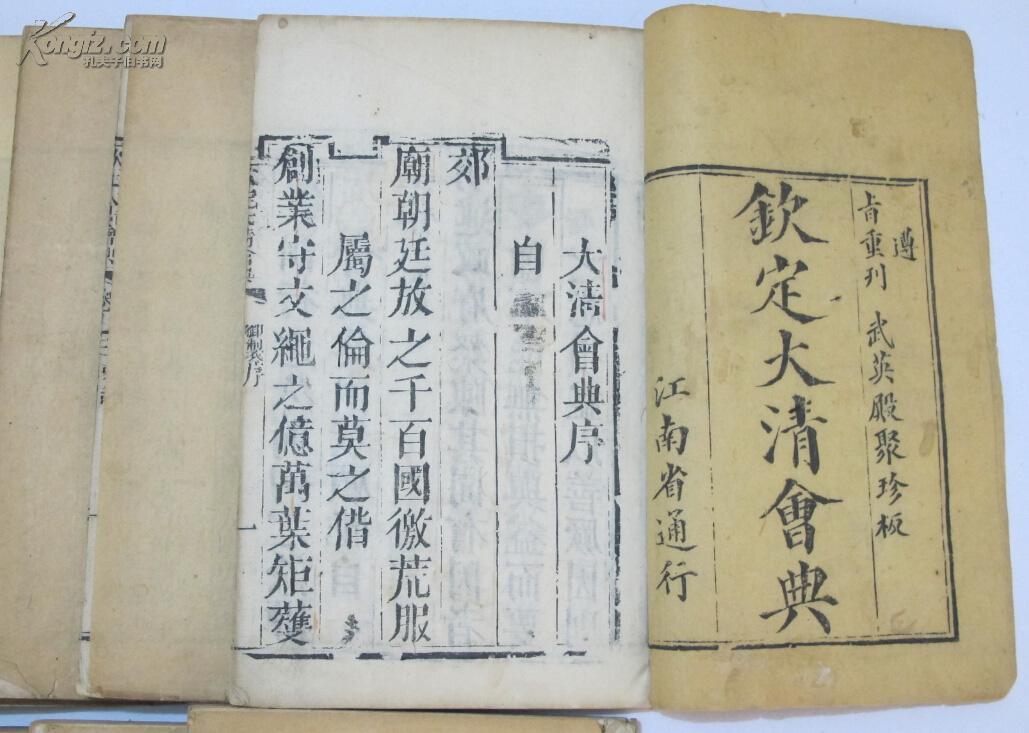 Kongfz.com
孔夫子旧书网
遵
旨重刊 武英殿聚珍板
欽定大清會典
江南省通行
大清會典序
自
郊
廟朝廷放之千百國徼荒服
屬之倫而莫之偕
創業守文繩之億萬葉矩蒦
御製序